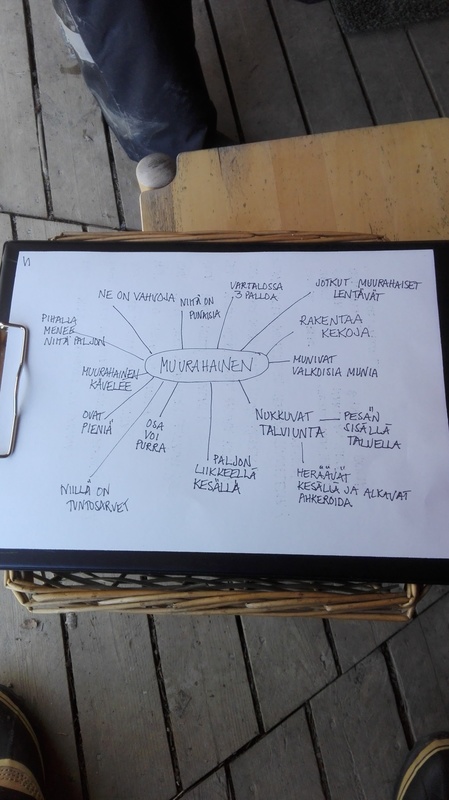 NE ON VAHVOJA
NIITÄ ON
PUNAISIA
VARTALOSSA
3 PALLOA
JOTKUT MUURAHAISET
LENTÄVÄT
PIHALLA
MENEE
NIITÄ PALJON
RAKENTAA
KEKOJA
MUURAHAINEN
MUURAHAINEN
KÄVELEE
MUNIVAT
VALKOISIA MUNIA
OVAT
PIENIÄ
OSA
VOI
PURRA
NUKKUVAT
TALVIUNTA
PESÄN
SISÄLLÄ
TALVELLA
PALJON
LIIKKEELLÄ
KESÄLLÄ
HERÄÄVÄT
KESÄLLÄ JA ALKAVAT
AHKEROIDA.
NIILLÄ ON
TUNTOSARVET